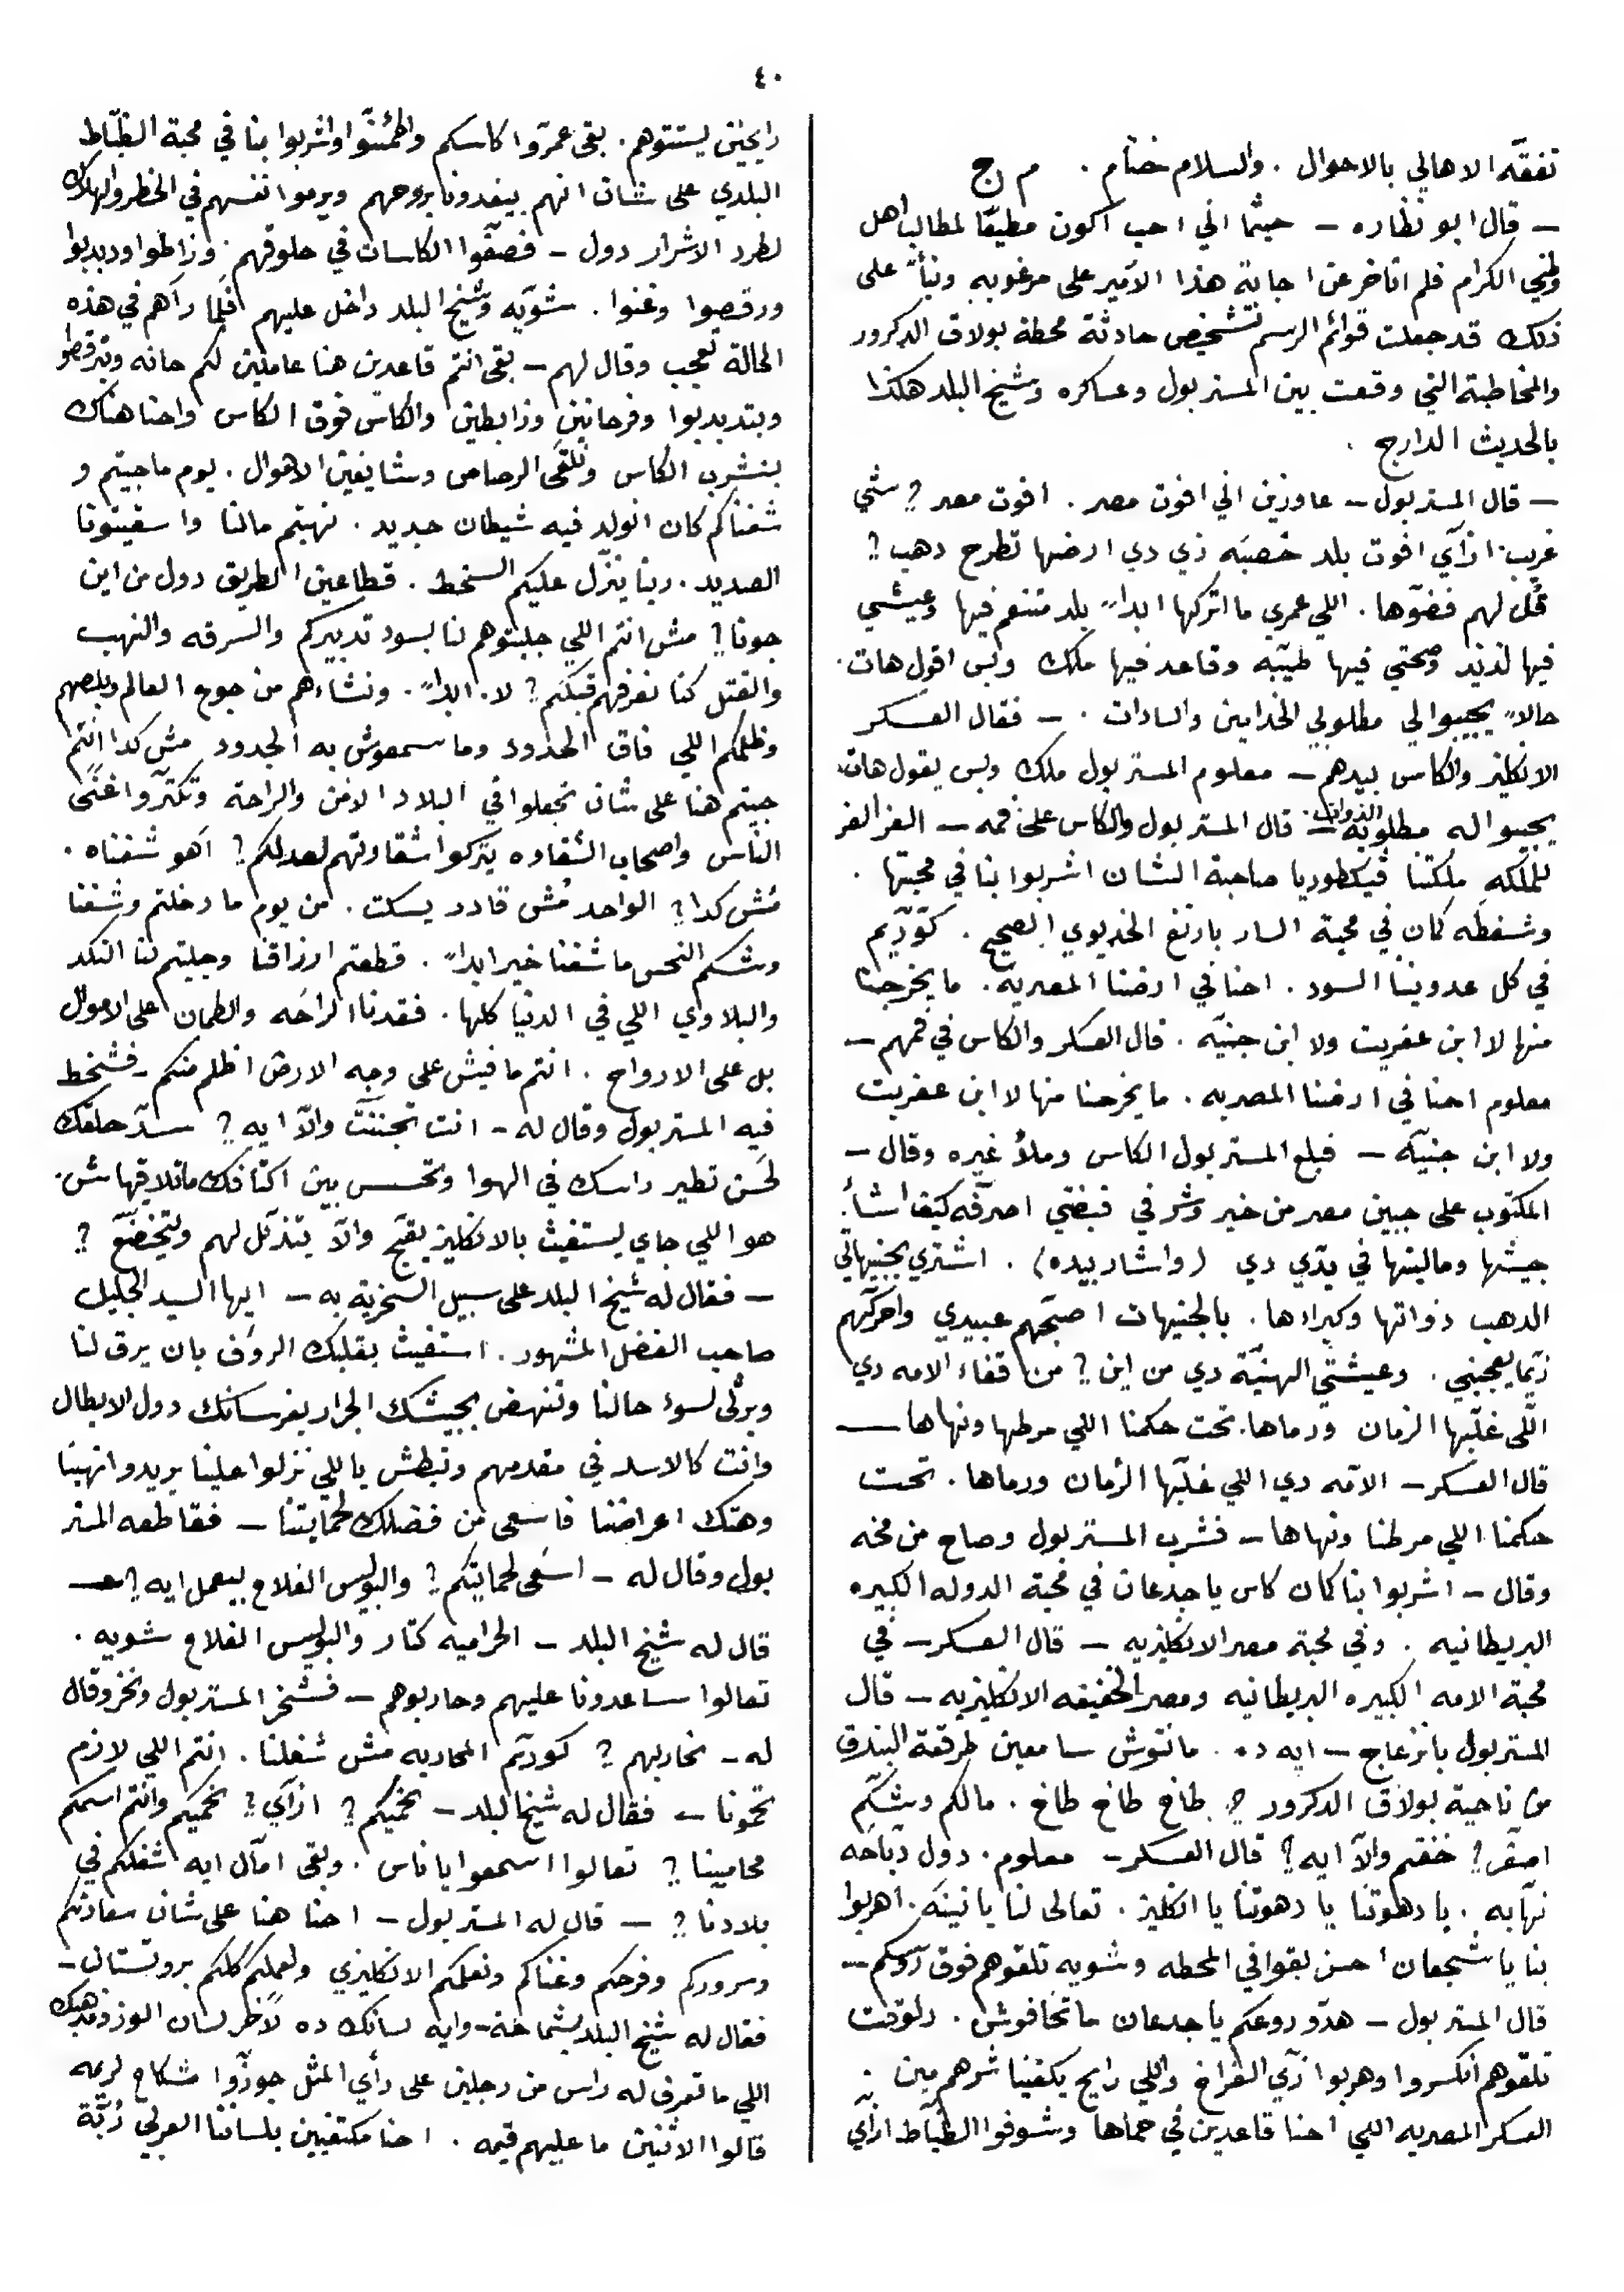 ٤٠
تفقّه الاهالي بالاحوال . والسلام ختام . م ج
— قال ابو نظاره — حيثما اني احب اكون مطيعًا لمطالب اهل
وطني الكرام فلم اتاخر عن اجابة هذا الامير على مرغوبه وبناً على
ذلك قد جعلت قوائم الرسم تشخيص حادثة محطة بولاق الدكرور
والمخاطبة التي وقعت بين المستر بول وعساكره وشيخ البلد هكذا
بالحديث الدارج .
— قال المستر بول — عاوزين اني افوت مصر . افوت مصر ? شي
غريب . ازآي افوت بلد خصبَه زي دي ارضها تطرح دهب ?
قُل لهم فضوّها . اللي عمري ما اتركها ابداً بلد متنعم فيها وعيشي
فيها لذيذ وصحتي فيها طيّبه وقاعد فيها ملك وبس اقول هات .
حالاً يجيبوا لي مطلوبي الخدامين والسادات . — فقال العسكر
الانكليز والكاس بيدهم — معلوم المستر بول ملك وبس يقول هات
يجيبوا له مطلوبه الذوات — قال المستر بول والكاس على فمه — الغز الغز
للملكه ملكتنا ڤيكطوريا صاحبة الشان اشربوا بنا في محبتها .
وشفطه كمان في محبة السار بارنغ الخديوي الصحيح . كوّديّم
في كل عدوينا السود . احنا في ارضنا المصريّه . ما يخرجنا
منها لا ابن عفريت ولا ابن جنيّه . قال العسكر والكاس في فمهم —
معلوم احنا في ارضنا المصريه . ما يخرجنا منها لا ابن عفريت
ولا ابن جنيّه — فبلع المستر بول الكاس وملأ غيره وقال —
المكتوب على جبين مصر من خير وشر في قبضتي اصرّفه كيفما اشأ .
جيشها وماليتها في يدّي دي ( واشار بيده ) . اشتري بجنيهاتي
الدهب ذواتها وكبراءها . بالجنيهات اصبّحهم عبيدي واحركهم
زيّما يعجبني . وعيشتي الهنيّة دي من اين ? من قفاء الامه دي
اللّي غلّبها الزمان ورماها . تحت حكمنا اللي مرطها ونهاها —
قال العسكر — الامّه دي اللي غلّبها الزمان ورماها . تحت
حكمنا اللي مرطنا ونهاها — فشرب المستر بول وصاح من مخه
وقال — اشربوا بنا كمان كاس يا جدعان في محبة الدوله الكبيره
البريطانيه . وفي محبة مصر الانكليزيه — قال العسكر — في
محبة الامه الكبيره البريطانيه ومصر الخفيفه الانكليزيه — قال
المستر بول بانزعاج — ايه ده . مانتوش سامعين طرقعة البندق
من ناحية بولاق الدكرور ? طاخ طاخ طاخ . مالكم وشكّم
اصفّر ? خفتم والاّ ايه ? قال العسكر — معلوم . دول دبّاحه
نهّابه . يا دهوتنا يا دهوتنا يا انكليز . تعالى لنا يا نينَه . اهربوا
بنا يا شجعان احسن بقوا في المحطه وشويه تلقوهم فوق روسكم —
قال المستر بول — هدّو روعكم يا جدعان ما تخافوش . دلوقت
تلقوهم انكسروا وهربوا زيّ الفراخ واللي رايح يكفينا شرهم مين .
العسكر المصريه اللي احنا قاعدين في حماها وشوفوا الظبّاط ازآيّ
رايحين يستتوهم . بقى عمرّوا كاسكم واطمئنّوا واشربوا بنا في محبة الظبّاط
البلدي على شان انهم بيفدونا بروحهم ويرموا نفسهم في الخطر والهلاك
لطرد الاشرار دول — فصقّوا الكاسات في حلوقهم . وزاطوا ودبدبوا
ورقصوا وغنوا . شويّه وشيخ البلد داخل عليهم فلما رآهم في هذه
الحالة تعجب وقال لهم — بقى انتم قاعدين هنا عاملين لكم حانه وتبرقطو
وبتدبدبوا وفرحانين وزابطين والكاس فوق الكاس واحنا هناك
بنشرب الكاس ونلقى الرصاص وشايفين الاهوال . يوم ما جيتم و
شفناكم كان انولد فيه شيطان جديد . نهبتم مالنا واسقيتونا
الصديد . ربنا ينزّل عليكم السخط . قطاعين الطريق دول من اين
جونا ? مش انتم اللي جلبتوهم لنا بسود تدبيركم والسرقه والنهب
والقتل كنا نعرفهم قبلكم ? لا . ابداً . ونشاءهم من جوع العالم وبلصهم
وظلمكم اللي فاق الحدود وما سمعوش به الجدود مش كدا انتم
جيتم هنا على شان تجعلوا في البلاد الامن والراحة وتكترّوا غنى
الناس واصحاب الشقاوه يتركوا شقاوتهم لعدلكم ? اهو شفناه .
مُش كدا ? الواحد مُش قادر يسكت . من يوم ما دخلتم وشفنا
وشكم النحس ما شفنا خير ابداً . قطعتم ارزاقنا وجلبتم لنا النكد
والبلاوي اللي في الدنيا كلها . فقدنا الراحَه والطمان على الاموال
بل على الارواح . انتم ما فيش على وجه الارض اظلم منكم — فشخط
فيه المستر بول وقال له — انت تجننت والاّ ايه ? سدّ حلقك
لحَسن تطير راسك في الهوا وتحسس بين اكتافك ما تلاقيهاش .
هو اللي جاي يستغيث بالانكليز يقبّح والاّ يتذلّل لهم ويتخضّع ?
— فقال له شيخ البلد على سبيل السخرية به — ايها السيد الجليل
صاحب الفضل المشهور . استغيث بقلبك الروَف بان يرق لنا
ويرثى لسوء حالنا وتنهض بجيشك الجرار بفرسانك دول الابطال
وانت كالاسد في مقدمهم وتبطش باللي نزلوا علينا يريدوا نهبنا
وهتك اعراضنا فاسعى من فضلك لحمايتنا — فقاطعه المستر
بول وقال له — اسعى لحمايتكم ? والبوليس الفلاح بيعمل ايه ? —
قال له شيخ البلد — الحراميه كتار والبوليس الفلاح شويه .
تعالوا ساعدونا عليهم وحاربوهم — فشخر المستر بول ونخر وقال
له — نحاربهم ? كوديّم المحاربه مش شغلنا . انتم اللي لازم
تحمونا — فقال له شيخ البلد — نحميكم ? ازآي ? نحميكم وانتم اسمكم
محاميينا ? تعالوا اسمعوا يا ناس . وبقى امّال ايه شغلكم في
بلادنا ? — قال له المستر بول — احنا هنا على شان سعادتكم
وسروركم وفرحكم وغناكم ونعلمكم الانكليزي ونعملكم كلكم بروتستان —
فقال له شيخ البلد بشماخة — وايه لسانك ده لاخر لسان الوز ومذهبك
اللي ما تعرف له راس من رجلين على رأي المثل جوزّوا مشكاح لريمه
قالوا الاثنين ما عليهم قيمه . احنا مكتفيين بلساننا العربي رُبّة